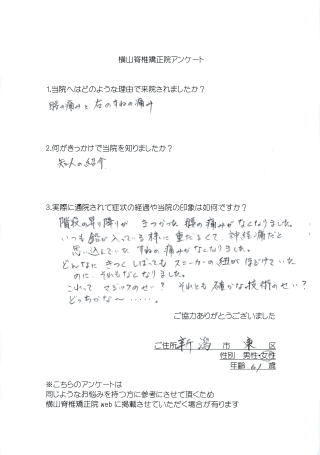 横山脊椎矯正院アンケート
1.当院へはどのような理由で来院されましたか?
腰の痛みと 右のすねの痛み
2.何がきっかけで当院を知りましたか?
知人の紹介
3.実際に通院されて症状の経過や当院の印象は如何ですか?
階段の昇り降りが きつかった 腰の痛みがなくなりました。
いつも鉛が入っている様に重だるくて、神経痛だと
思い込んでいた すねの痛みがなくなりました。
どんなに きつくしばっても スニーカーの紐がほどけていた
のに、それもなくなりました。
これって マジックのせい? それとも 確かな技術のせい?
どっちかな〜……。
ご協力ありがとうございました
ご住所 新潟 市 東 区
性別 男性・女性
年齢 61 歳
※こちらのアンケートは
同じようなお悩みを持つ方に参考にさせて頂くため
横山脊椎矯正院 web に掲載させていただく場合が有ります